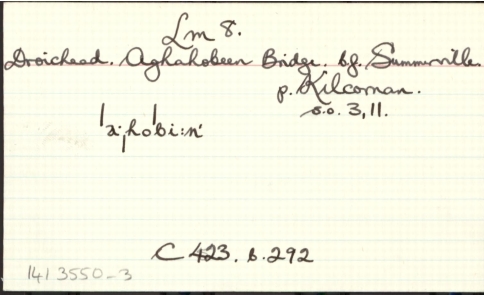 Lm 8.
Droichead. Aghahobeen Bridge. bf. Summerville.
p. Kilcornan.
s.o. 3,11.
ˈaˌhoˈbiːnʹ
C 423. b. 292
1413550-3